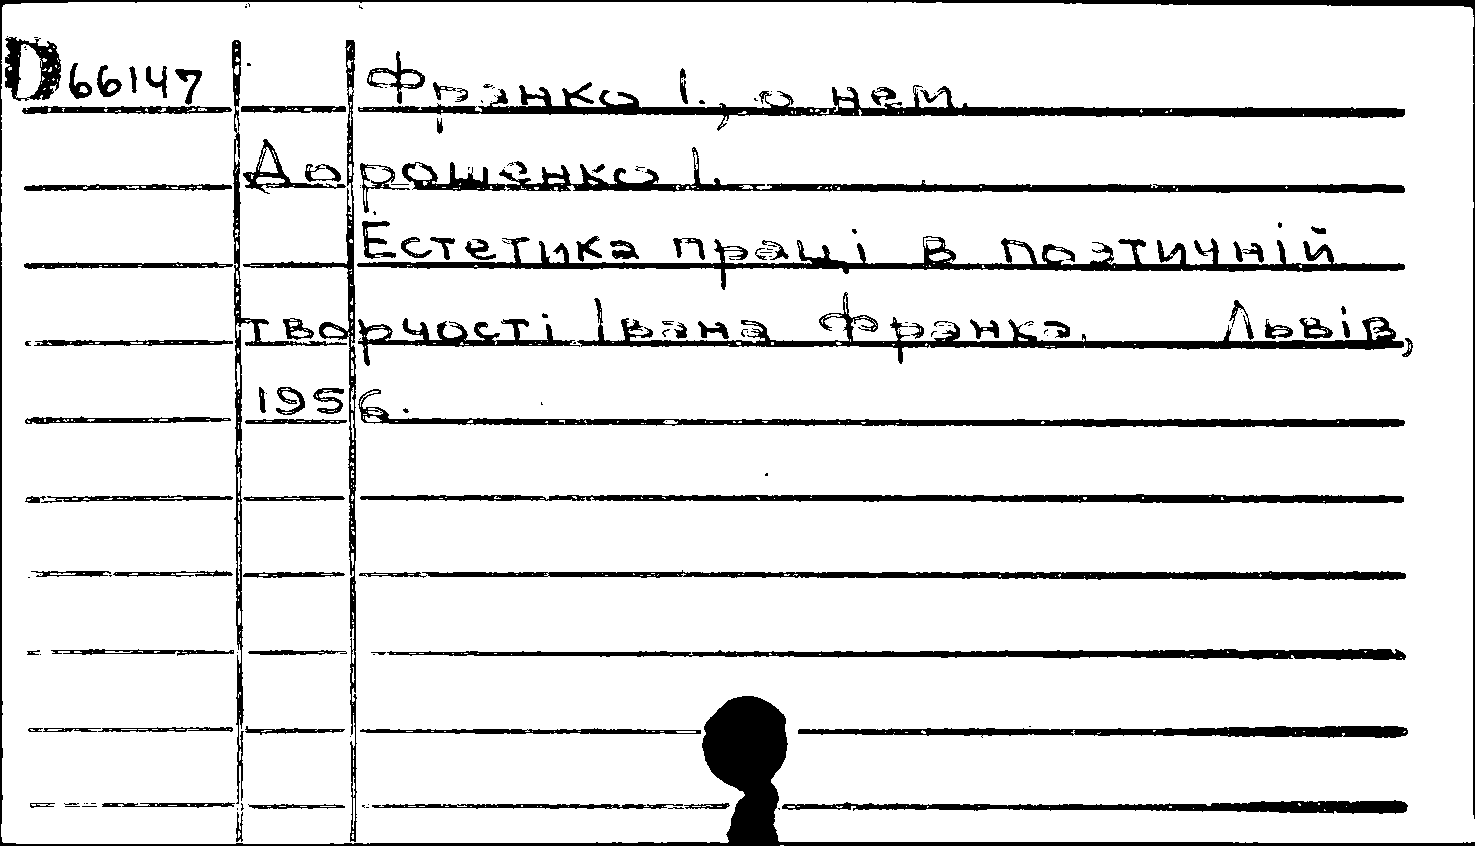 D66147 Франко І., о нем.
Дорошенко І.
Естетика праці в поэтичній
творчості Івана Франка. Львів,
1956.